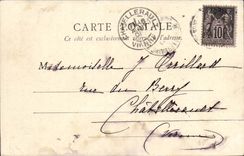 CARTE POSTALE
Ce côté est exclusivement réservé à l'adresse.
CHATELLERAULT
VIENNE
10
Mademoiselle J. Orillard
rue du Berry
Châtellerault
Vienne